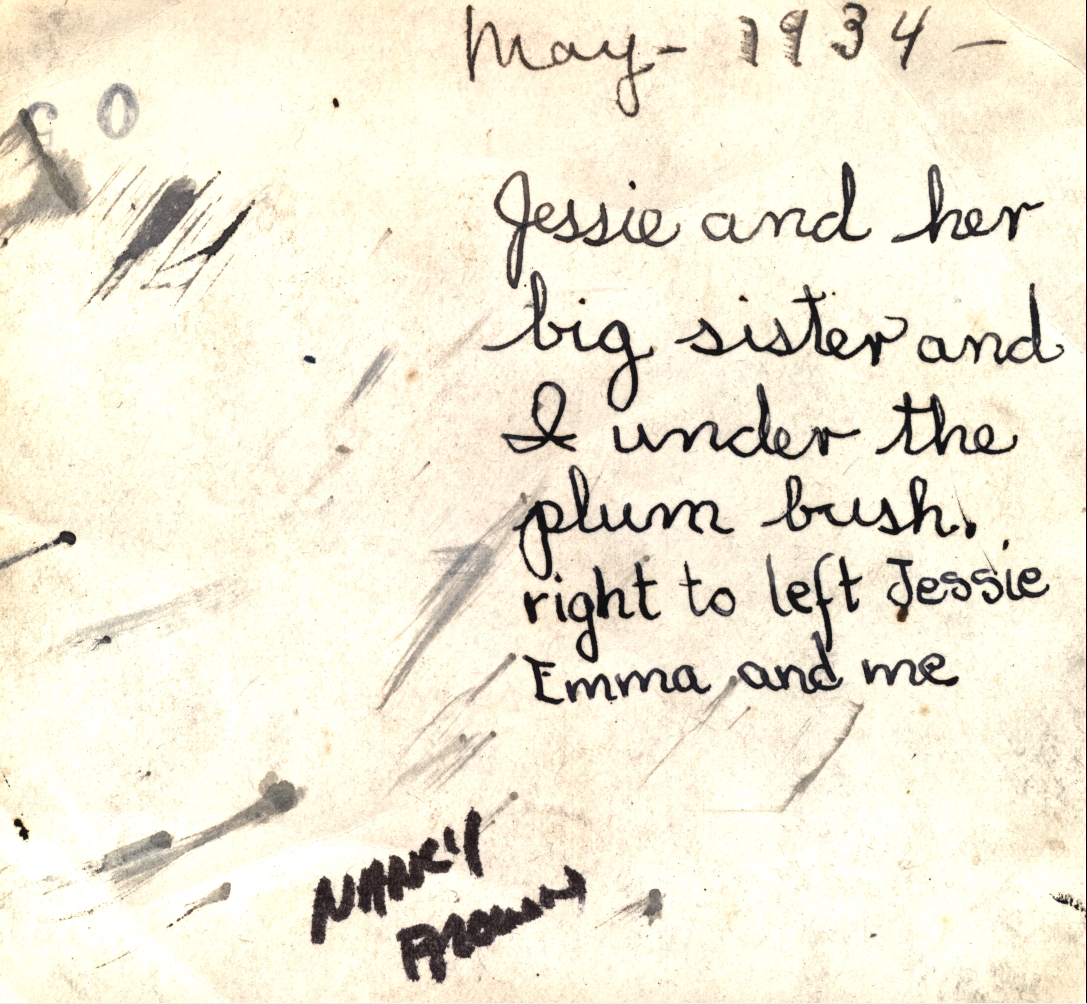 May - 1934 -
Jessie and her
big sister and
I under the
plum bush.
right to left Jessie
Emma and me
NANCY